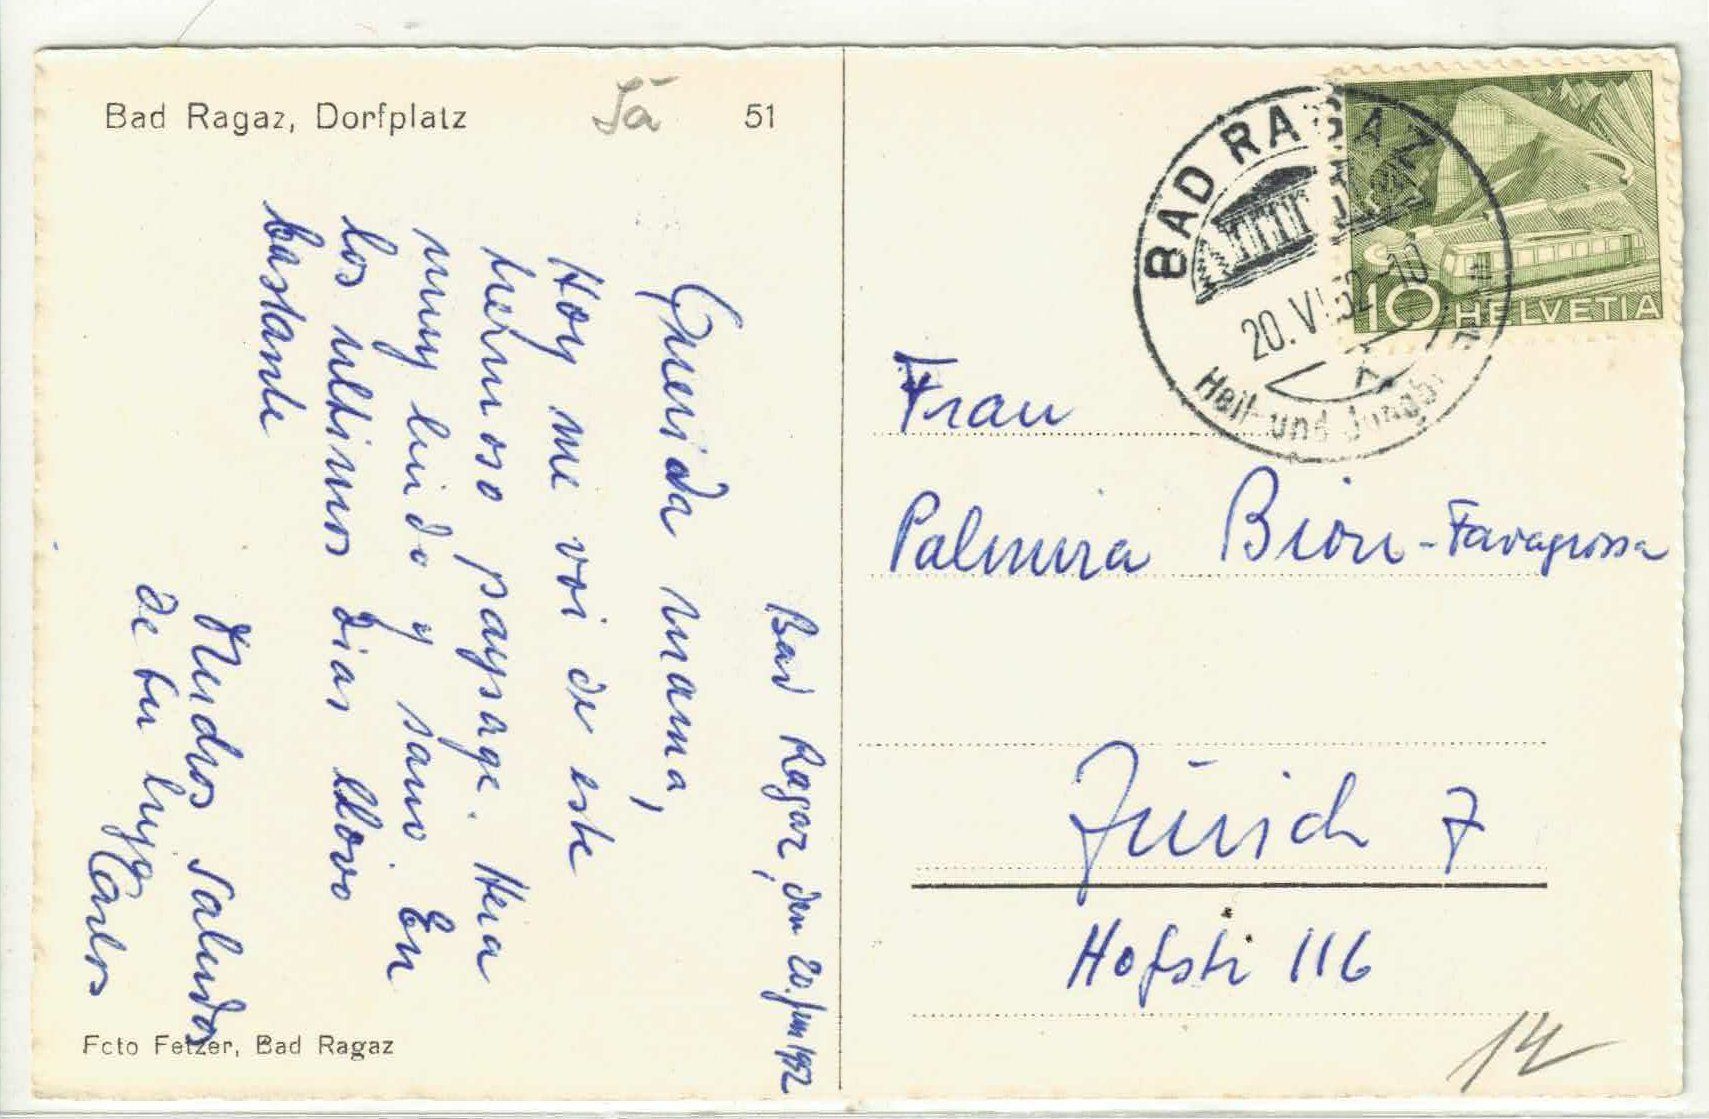 Bad Ragaz, Dorfplatz
Jä
51
Bad Ragaz, den 20. Juni 1952
Querida mama,
Hoy me voi de este
hermoso paysage. Hera
muy lindo y sano. En
los ultimos dias llovio
bastante
Muchos Saludos
de tu hijo
Carlos
Foto Fetzer, Bad Ragaz
BAD RAGAZ
20. VI. 52 - 10
Heil- und Jungb
10 HELVETIA
Frau
Palmira Bion-Favagrossa
Zürich 7
Hofstr 116
14